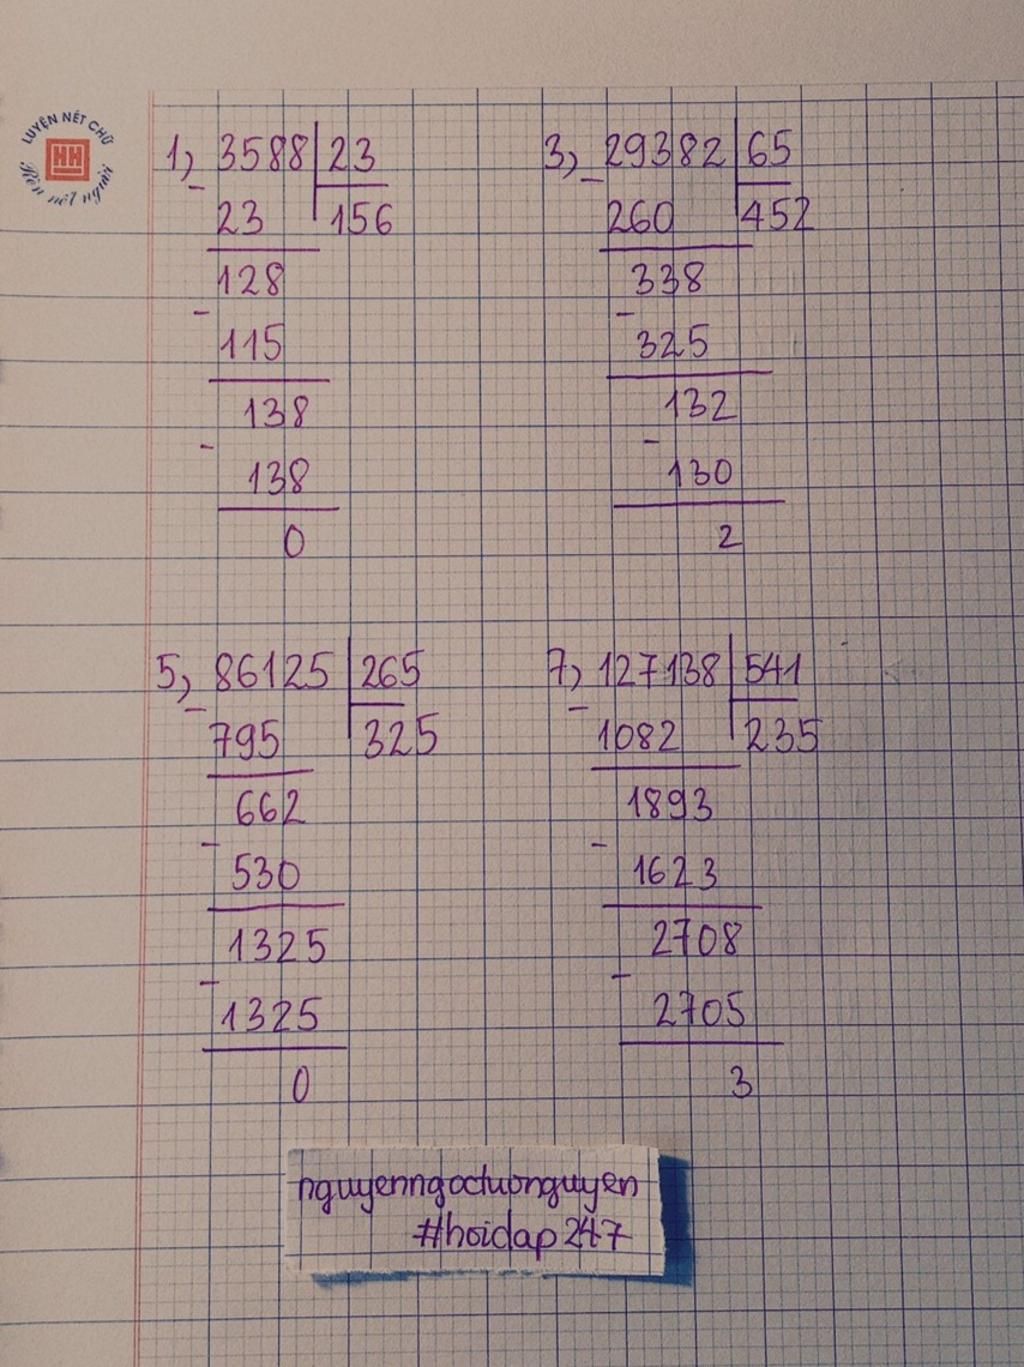 LUYỆN NÉT CHỮ
HH
Rèn nết người
1, 3588 23
- 23 156
128
- 115
138
- 138
0
3, 29382 65
- 260 452
338
- 325
132
- 130
2
5, 86125 265
- 795 325
662
- 530
1325
- 1325
0
7, 127138 541
- 1082 235
1893
- 1623
2708
- 2705
3
nguyenngoctuonguyen
#hoidap247